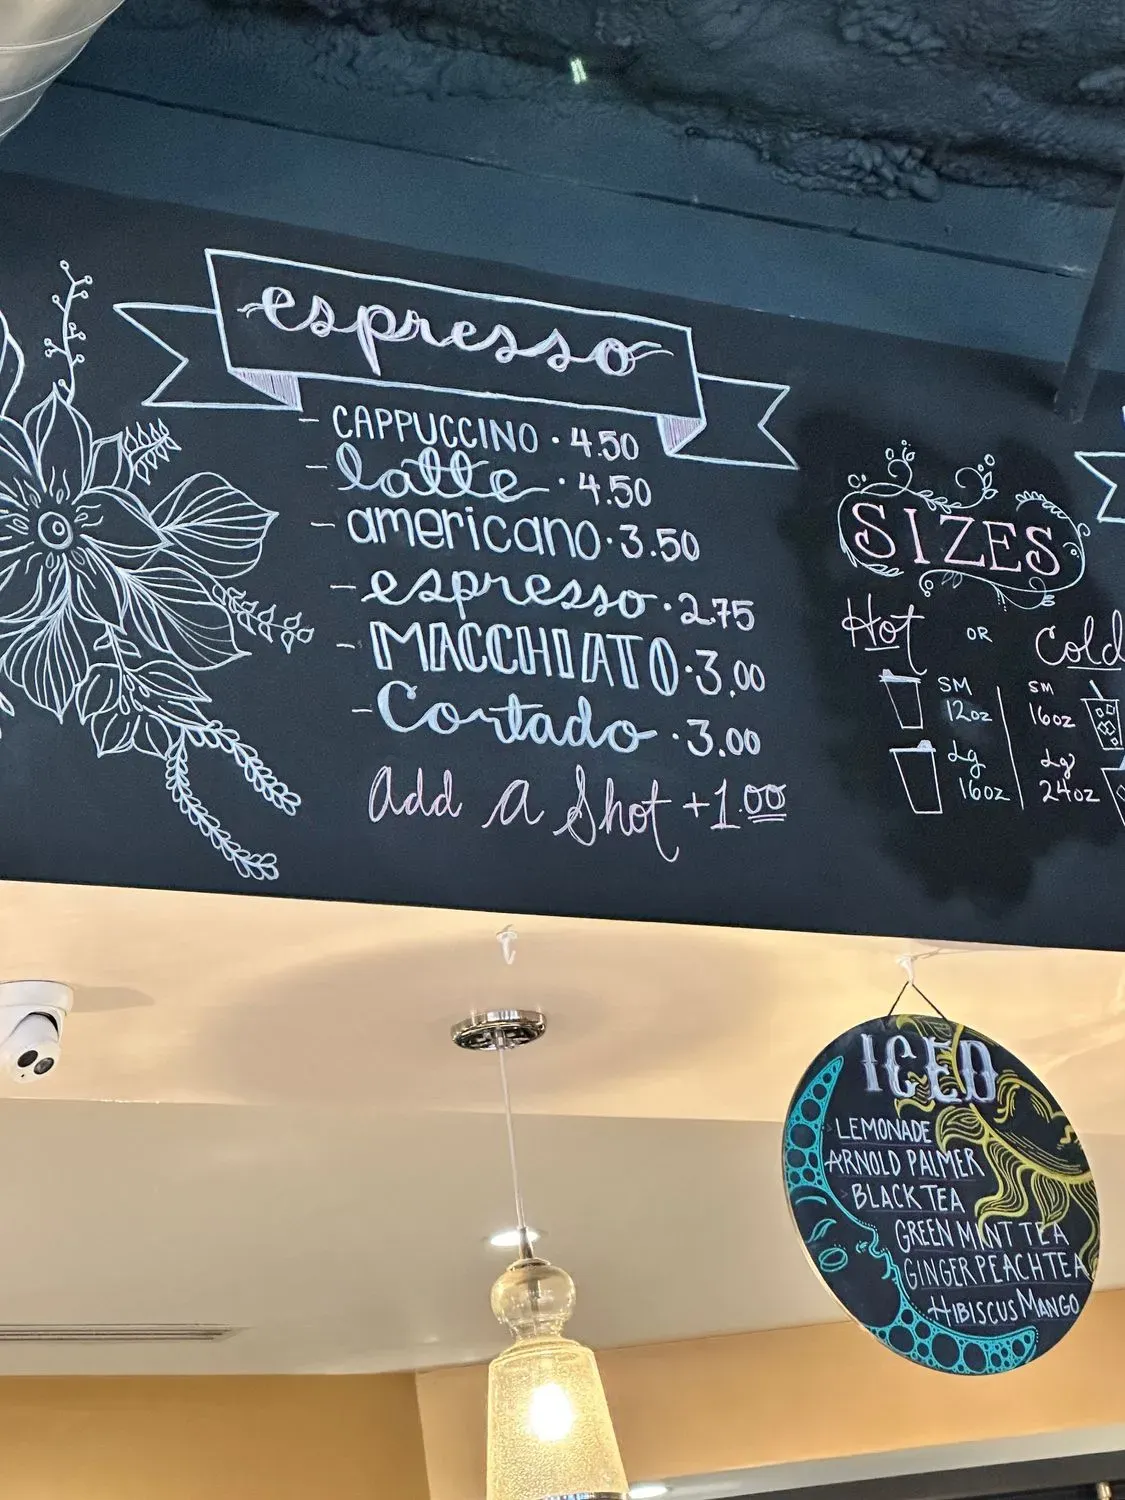 espresso
- CAPPUCCINO · 4.50
- latte · 4.50
- americano · 3.50
- espresso · 2.75
- MACCHIATO · 3.00
- Cortado · 3.00
add a Shot +1.00
SIZES
Hot OR Cold
SM 12oz
Lg 16oz
SM 16oz
Lg 24oz
ICED
LEMONADE
ARNOLD PALMER
BLACK TEA
GREEN MINT TEA
GINGER PEACH TEA
HIBISCUS MANGO